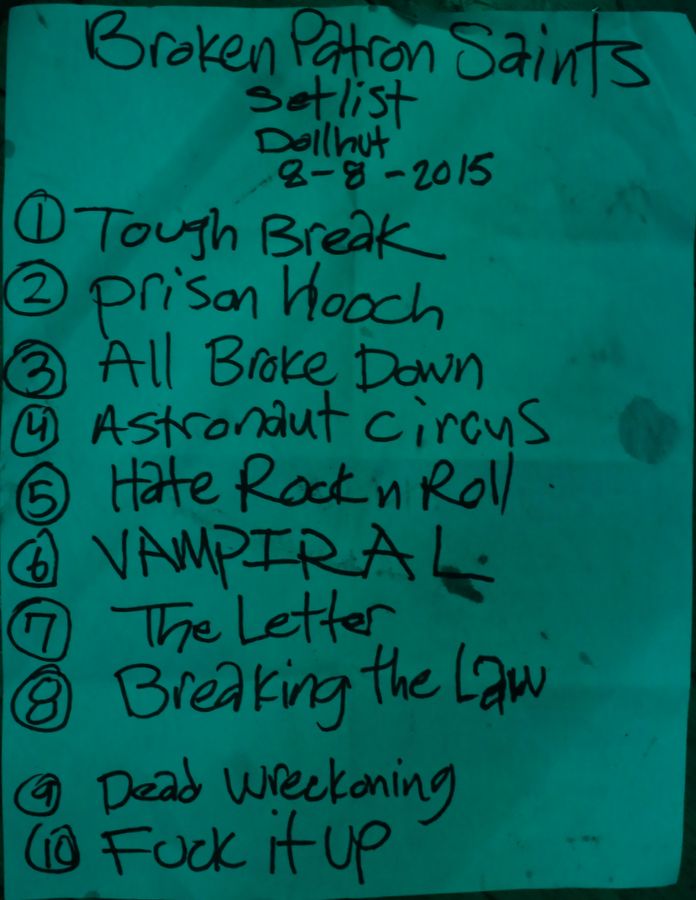 Broken Patron Saints
Setlist
Dollhut
8-8-2015
① Tough Break
② Prison Hooch
③ All Broke Down
④ Astronaut Circus
⑤ Hate Rock n Roll
⑥ VAMPIRAL
⑦ The Letter
⑧ Breaking the Law
⑨ Dead Wreckoning
⑩ Fuck it up